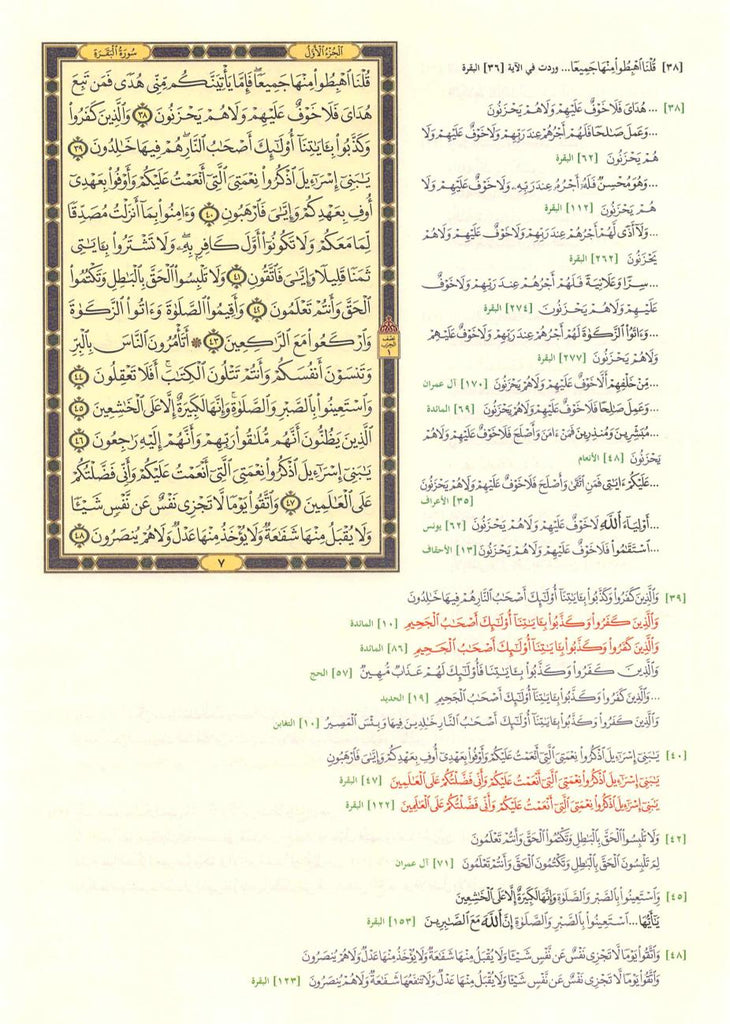 سُورَةُ الْبَقَرَةِ
الجُزْءُ الأَوَّلُ
قُلْنَا ٱهْبِطُوا۟ مِنْهَا جَمِيعًاۖ فَإِمَّا يَأْتِيَنَّكُم مِّنِّى هُدًى فَمَن تَبِعَ
هُدَاىَ فَلَا خَوْفٌ عَلَيْهِمْ وَلَا هُمْ يَحْزَنُونَ ٣٨ وَٱلَّذِينَ كَفَرُوا۟
وَكَذَّبُوا۟ بِـَٔايَـٰتِنَآ أُو۟لَـٰٓئِكَ أَصْحَـٰبُ ٱلنَّارِۖ هُمْ فِيهَا خَـٰلِدُونَ ٣٩
يَـٰبَنِىٓ إِسْرَٰٓءِيلَ ٱذْكُرُوا۟ نِعْمَتِىَ ٱلَّتِىٓ أَنْعَمْتُ عَلَيْكُمْ وَأَوْفُوا۟ بِعَهْدِىٓ
أُوفِ بِعَهْدِكُمْ وَإِيَّـٰىَ فَٱرْهَبُونِ ٤٠ وَءَامِنُوا۟ بِمَآ أَنزَلْتُ مُصَدِّقًا
لِّمَا مَعَكُمْ وَلَا تَكُونُوٓا۟ أَوَّلَ كَافِرٍۭ بِهِۦۖ وَلَا تَشْتَرُوا۟ بِـَٔايَـٰتِى
ثَمَنًا قَلِيلًا وَإِيَّـٰىَ فَٱتَّقُونِ ٤١ وَلَا تَلْبِسُوا۟ ٱلْحَقَّ بِٱلْبَـٰطِلِ وَتَكْتُمُوا۟
ٱلْحَقَّ وَأَنتُمْ تَعْلَمُونَ ٤٢ وَأَقِيمُوا۟ ٱلصَّلَوٰةَ وَءَاتُوا۟ ٱلزَّكَوٰةَ
وَٱرْكَعُوا۟ مَعَ ٱلرَّٰكِعِينَ ٤٣ ۞ أَتَأْمُرُونَ ٱلنَّاسَ بِٱلْبِرِّ
وَتَنسَوْنَ أَنفُسَكُمْ وَأَنتُمْ تَتْلُونَ ٱلْكِتَـٰبَۚ أَفَلَا تَعْقِلُونَ ٤٤
وَٱسْتَعِينُوا۟ بِٱلصَّبْرِ وَٱلصَّلَوٰةِۚ وَإِنَّهَا لَكَبِيرَةٌ إِلَّا عَلَى ٱلْخَـٰشِعِينَ ٤٥
ٱلَّذِينَ يَظُنُّونَ أَنَّهُم مُّلَـٰقُوا۟ رَبِّهِمْ وَأَنَّهُمْ إِلَيْهِ رَٰجِعُونَ ٤٦
يَـٰبَنِىٓ إِسْرَٰٓءِيلَ ٱذْكُرُوا۟ نِعْمَتِىَ ٱلَّتِىٓ أَنْعَمْتُ عَلَيْكُمْ وَأَنِّى فَضَّلْتُكُمْ
عَلَى ٱلْعَـٰلَمِينَ ٤٧ وَٱتَّقُوا۟ يَوْمًا لَّا تَجْزِى نَفْسٌ عَن نَّفْسٍ شَيْـًٔا
وَلَا يُقْبَلُ مِنْهَا شَفَـٰعَةٌ وَلَا يُؤْخَذُ مِنْهَا عَدْلٌ وَلَا هُمْ يُنصَرُونَ ٤٨
٧
نصف
الحزب
١
[٣٨] قُلْنَا ٱهْبِطُوا۟ مِنْهَا جَمِيعًا... وردت في الآية [٣٦] البقرة
[٣٨] ... هُدَاىَ فَلَا خَوْفٌ عَلَيْهِمْ وَلَا هُمْ يَحْزَنُونَ
...وَعَمِلَ صَـٰلِحًا فَلَهُمْ أَجْرُهُمْ عِندَ رَبِّهِمْ وَلَا خَوْفٌ عَلَيْهِمْ وَلَا
هُمْ يَحْزَنُونَ [٦٢] البقرة
...وَهُوَ مُحْسِنٌ فَلَهُۥٓ أَجْرُهُۥ عِندَ رَبِّهِۦ وَلَا خَوْفٌ عَلَيْهِمْ وَلَا
هُمْ يَحْزَنُونَ [١١٢] البقرة
...وَلَآ أَذًى لَّهُمْ أَجْرُهُمْ عِندَ رَبِّهِمْ وَلَا خَوْفٌ عَلَيْهِمْ وَلَا هُمْ
يَحْزَنُونَ [٢٦٢] البقرة
...سِرًّا وَعَلَانِيَةً فَلَهُمْ أَجْرُهُمْ عِندَ رَبِّهِمْ وَلَا خَوْفٌ
عَلَيْهِمْ وَلَا هُمْ يَحْزَنُونَ [٢٧٤] البقرة
...وَءَاتَوُا۟ ٱلزَّكَوٰةَ لَهُمْ أَجْرُهُمْ عِندَ رَبِّهِمْ وَلَا خَوْفٌ عَلَيْهِمْ
وَلَا هُمْ يَحْزَنُونَ [٢٧٧] البقرة
...مِّنْ خَلْفِهِمْ أَلَّا خَوْفٌ عَلَيْهِمْ وَلَا هُمْ يَحْزَنُونَ [١٧٠] آل عمران
...وَعَمِلَ صَـٰلِحًا فَلَا خَوْفٌ عَلَيْهِمْ وَلَا هُمْ يَحْزَنُونَ [٦٩] المائدة
...مُبَشِّرِينَ وَمُنذِرِينَ فَمَنْ ءَامَنَ وَأَصْلَحَ فَلَا خَوْفٌ عَلَيْهِمْ وَلَا هُمْ
يَحْزَنُونَ [٤٨] الأنعام
...عَلَيْكُمْ ءَايَـٰتِى فَمَنِ ٱتَّقَىٰ وَأَصْلَحَ فَلَا خَوْفٌ عَلَيْهِمْ وَلَا هُمْ يَحْزَنُونَ
[٣٥] الأعراف
...أَوْلِيَآءَ ٱللَّهِ لَا خَوْفٌ عَلَيْهِمْ وَلَا هُمْ يَحْزَنُونَ [٦٢] يونس
...ٱسْتَقَـٰمُوا۟ فَلَا خَوْفٌ عَلَيْهِمْ وَلَا هُمْ يَحْزَنُونَ [١٣] الأحقاف
[٣٩] وَٱلَّذِينَ كَفَرُوا۟ وَكَذَّبُوا۟ بِـَٔايَـٰتِنَآ أُو۟لَـٰٓئِكَ أَصْحَـٰبُ ٱلنَّارِ هُمْ فِيهَا خَـٰلِدُونَ
وَٱلَّذِينَ كَفَرُوا۟ وَكَذَّبُوا۟ بِـَٔايَـٰتِنَآ أُو۟لَـٰٓئِكَ أَصْحَـٰبُ ٱلْجَحِيمِ [١٠] المائدة
وَٱلَّذِينَ كَفَرُوا۟ وَكَذَّبُوا۟ بِـَٔايَـٰتِنَآ أُو۟لَـٰٓئِكَ أَصْحَـٰبُ ٱلْجَحِيمِ [٨٦] المائدة
وَٱلَّذِينَ كَفَرُوا۟ وَكَذَّبُوا۟ بِـَٔايَـٰتِنَا فَأُو۟لَـٰٓئِكَ لَهُمْ عَذَابٌ مُّهِينٌ [٥٧] الحج
...وَٱلَّذِينَ كَفَرُوا۟ وَكَذَّبُوا۟ بِـَٔايَـٰتِنَآ أُو۟لَـٰٓئِكَ أَصْحَـٰبُ ٱلْجَحِيمِ [١٩] الحديد
وَٱلَّذِينَ كَفَرُوا۟ وَكَذَّبُوا۟ بِـَٔايَـٰتِنَآ أُو۟لَـٰٓئِكَ أَصْحَـٰبُ ٱلنَّارِ خَـٰلِدِينَ فِيهَا وَبِئْسَ ٱلْمَصِيرُ [١٠] التغابن
[٤٠] يَـٰبَنِىٓ إِسْرَٰٓءِيلَ ٱذْكُرُوا۟ نِعْمَتِىَ ٱلَّتِىٓ أَنْعَمْتُ عَلَيْكُمْ وَأَوْفُوا۟ بِعَهْدِىٓ أُوفِ بِعَهْدِكُمْ وَإِيَّـٰىَ فَٱرْهَبُونِ
يَـٰبَنِىٓ إِسْرَٰٓءِيلَ ٱذْكُرُوا۟ نِعْمَتِىَ ٱلَّتِىٓ أَنْعَمْتُ عَلَيْكُمْ وَأَنِّى فَضَّلْتُكُمْ عَلَى ٱلْعَـٰلَمِينَ [٤٧] البقرة
يَـٰبَنِىٓ إِسْرَٰٓءِيلَ ٱذْكُرُوا۟ نِعْمَتِىَ ٱلَّتِىٓ أَنْعَمْتُ عَلَيْكُمْ وَأَنِّى فَضَّلْتُكُمْ عَلَى ٱلْعَـٰلَمِينَ [١٢٢] البقرة
[٤٢] وَلَا تَلْبِسُوا۟ ٱلْحَقَّ بِٱلْبَـٰطِلِ وَتَكْتُمُوا۟ ٱلْحَقَّ وَأَنتُمْ تَعْلَمُونَ
لِمَ تَلْبِسُونَ ٱلْحَقَّ بِٱلْبَـٰطِلِ وَتَكْتُمُونَ ٱلْحَقَّ وَأَنتُمْ تَعْلَمُونَ [٧١] آل عمران
[٤٥] وَٱسْتَعِينُوا۟ بِٱلصَّبْرِ وَٱلصَّلَوٰةِ وَإِنَّهَا لَكَبِيرَةٌ إِلَّا عَلَى ٱلْخَـٰشِعِينَ
يَـٰٓأَيُّهَا...ٱسْتَعِينُوا۟ بِٱلصَّبْرِ وَٱلصَّلَوٰةِ إِنَّ ٱللَّهَ مَعَ ٱلصَّـٰبِرِينَ [١٥٣] البقرة
[٤٨] وَٱتَّقُوا۟ يَوْمًا لَّا تَجْزِى نَفْسٌ عَن نَّفْسٍ شَيْـًٔا وَلَا يُقْبَلُ مِنْهَا شَفَـٰعَةٌ وَلَا يُؤْخَذُ مِنْهَا عَدْلٌ وَلَا هُمْ يُنصَرُونَ
وَٱتَّقُوا۟ يَوْمًا لَّا تَجْزِى نَفْسٌ عَن نَّفْسٍ شَيْـًٔا وَلَا يُقْبَلُ مِنْهَا عَدْلٌ وَلَا تَنفَعُهَا شَفَـٰعَةٌ وَلَا هُمْ يُنصَرُونَ [١٢٣] البقرة